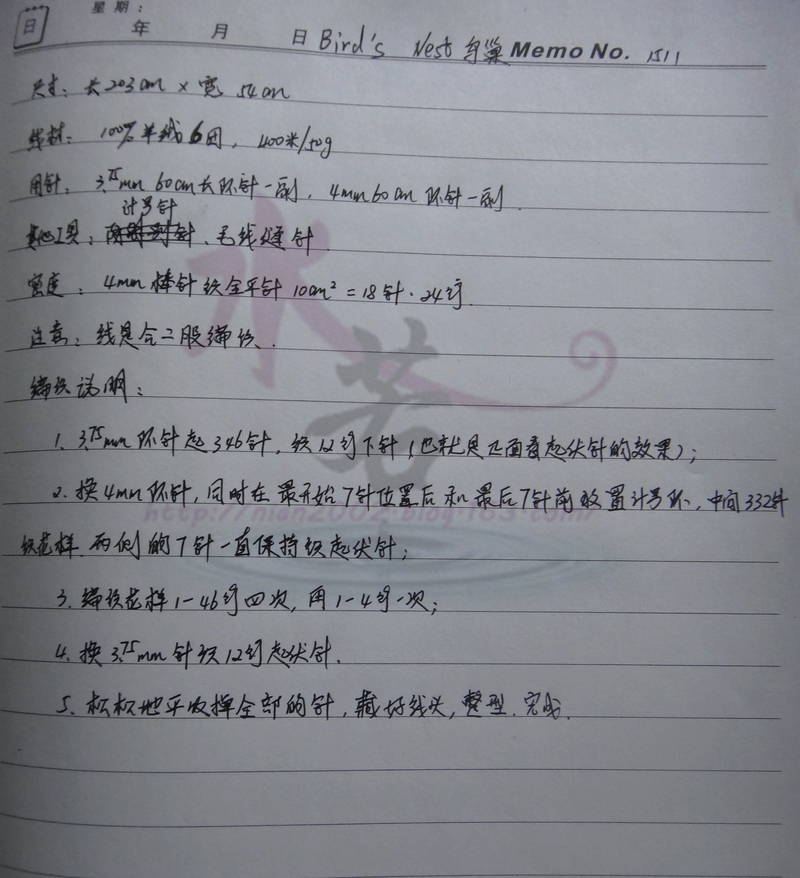 日 星期:
年 月 日 Bird's Nest 鸟巢 Memo No. 1511
尺寸: 长203cm × 宽 54cm
线材: 100%羊绒6团, 400米/50g
用针: 3.75mm 60cm长环针一副, 4mm 60cm 环针一副.
计号针
其他工具: 针、毛线缝针
密度: 4mm棒针织全平针 10cm² = 18针·24行.
注意: 线是合二股编织.
编织说明:
1. 3.75mm环针起346针, 织12行下针 (也就是正面看起伏针的效果);
2. 换4mm环针, 同时在最开始7针位置后和最后7针前放置计号环, 中间332针
织花样, 两侧的7针一直保持织起伏针;
3. 编织花样1-46行四次, 再1-4行一次;
4. 换3.75mm针织12行起伏针.
5. 松松地平收掉全部的针, 藏好线头, 整型. 完成.
水若
http://nian2002.blog.163.com/